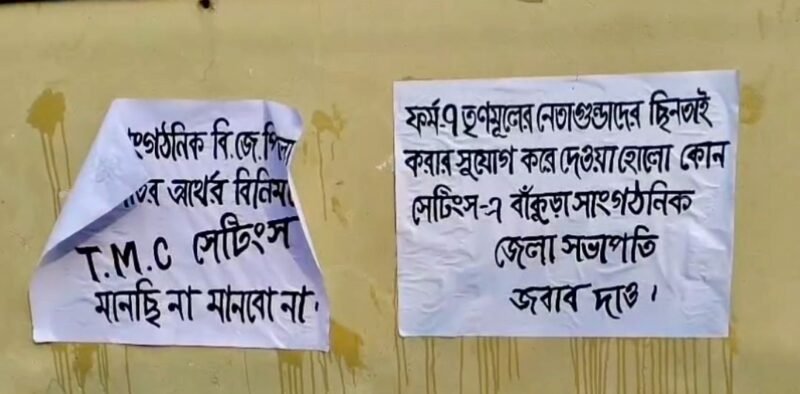 ংগঠনিক বি.জে.পি
আর্থর বিনিম
T.M.C সেটিংস
মানছি না মানবো না।
ফর্ম-৭ তৃণমূলের নেতাগুন্ডাদের ছিনতাই
করার সুযোগ করে দেওয়া হোলো কোন
সেটিংস-এ বাঁকুড়া সাংগঠনিক
জেলা সভাপতি
জবাব দাও।